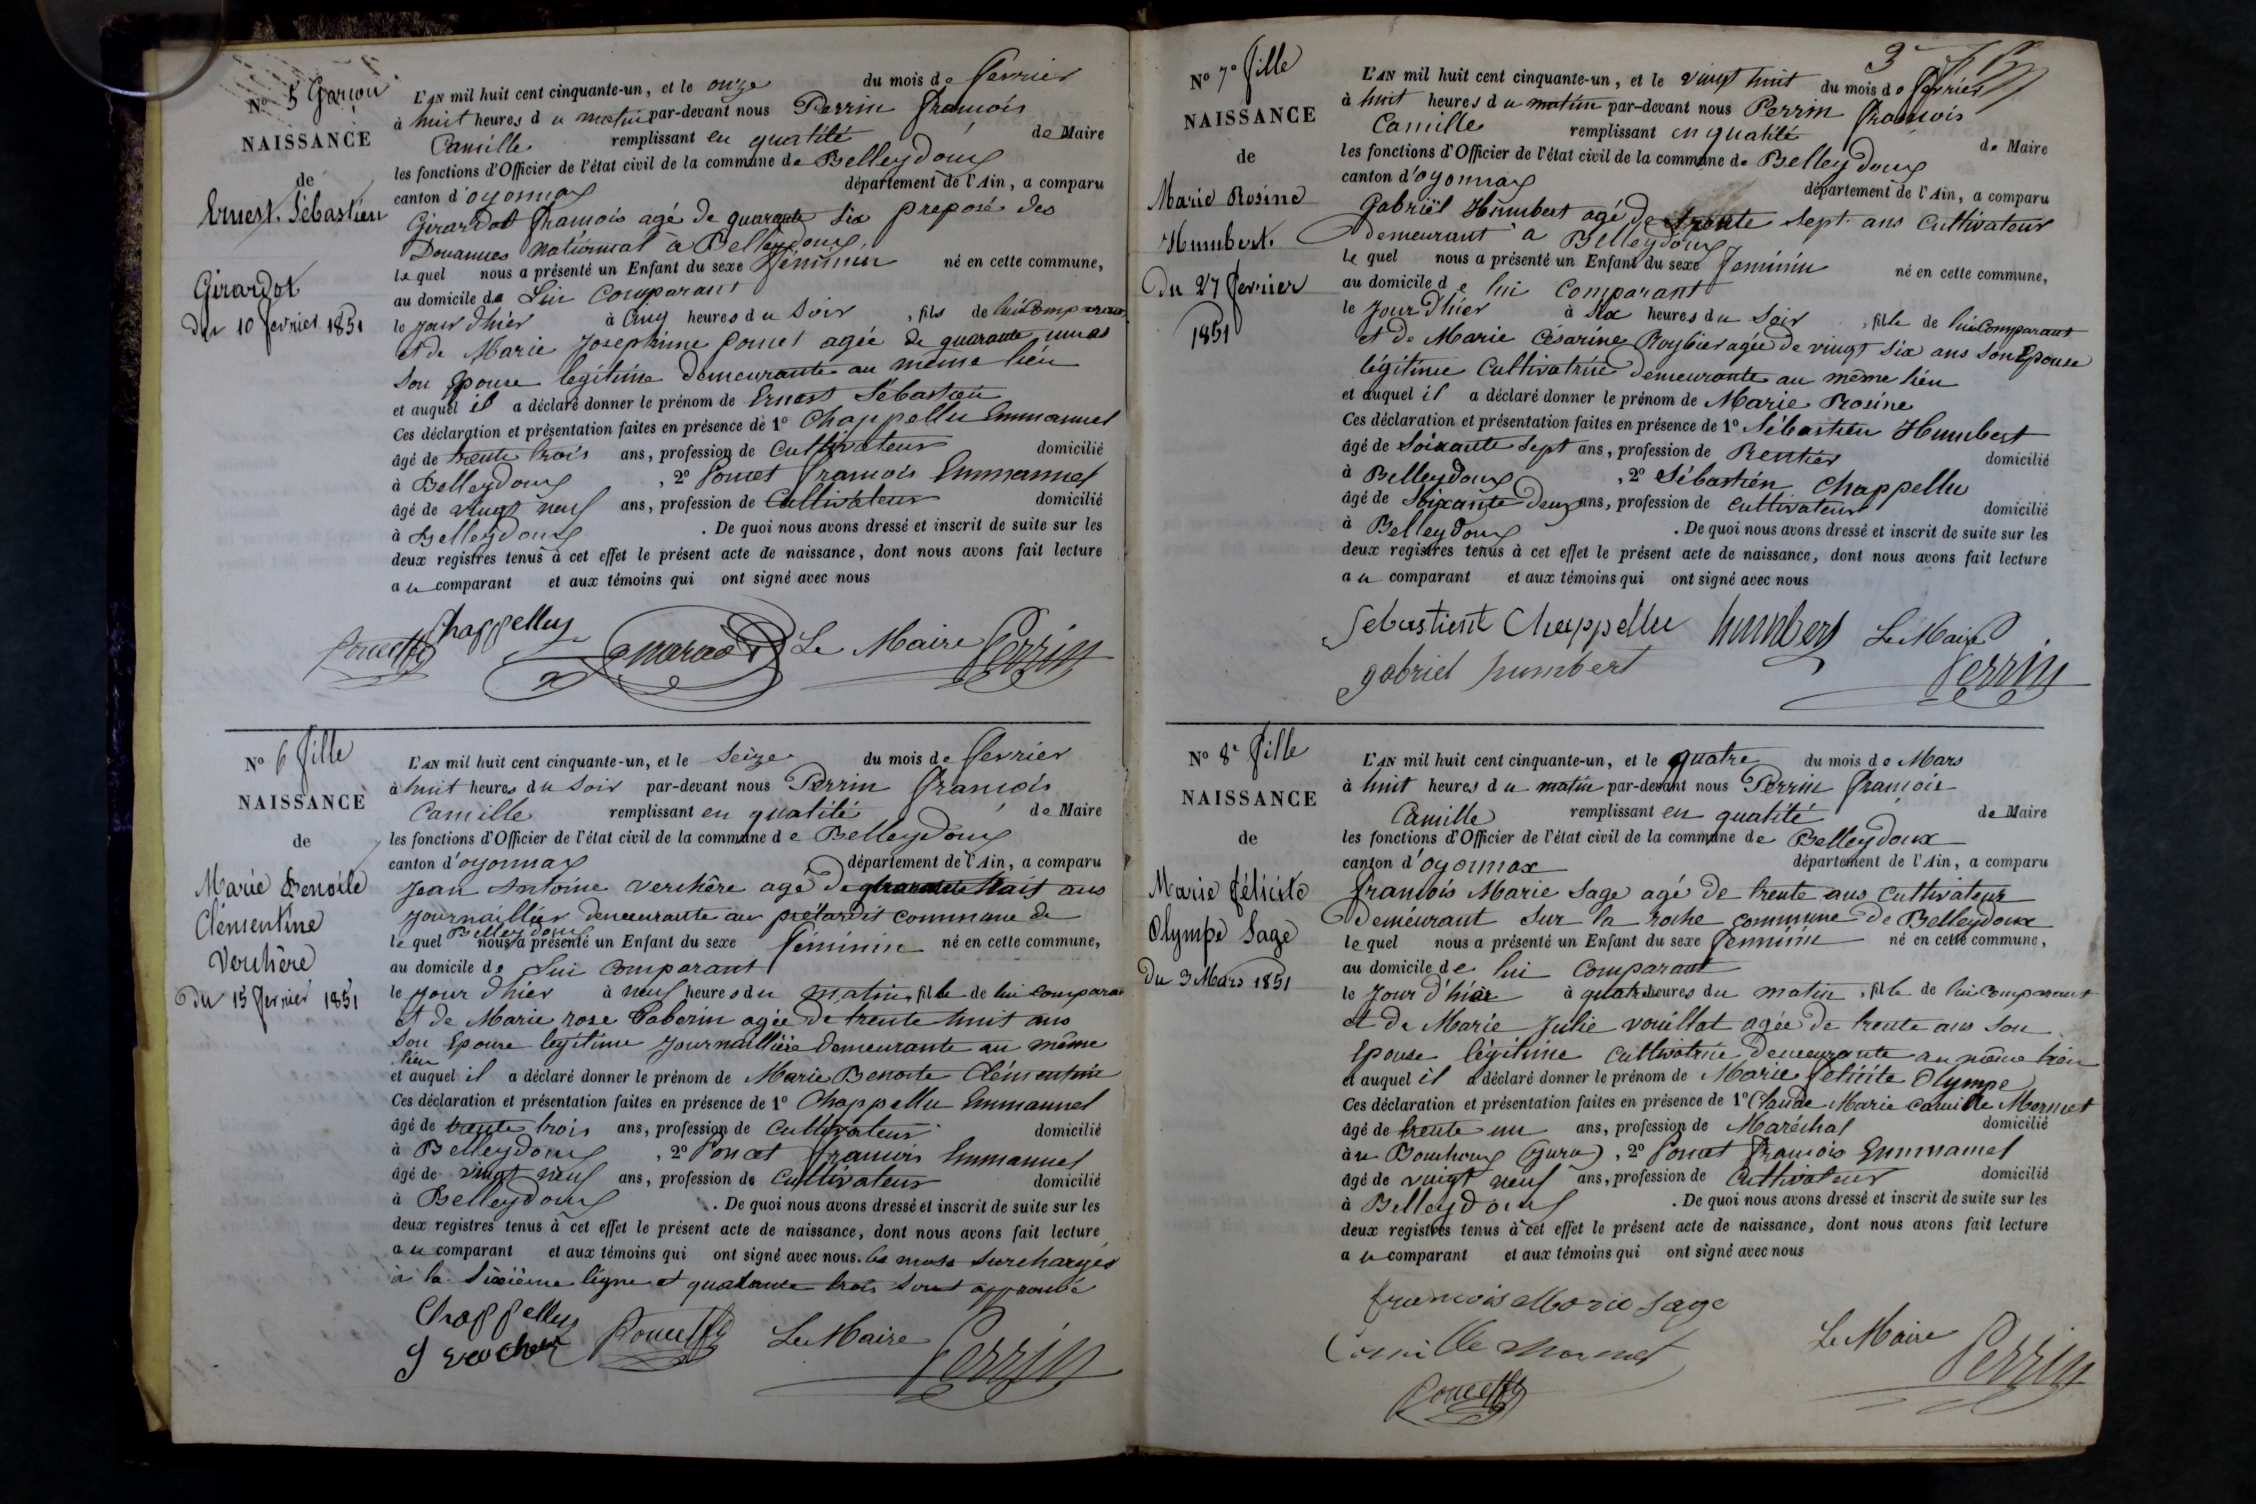 N° 5 Garçon
NAISSANCE
de
Ernest Sébastien
Girardot
du 10 fevrier 1851
L'AN mil huit cent cinquante-un, et le onze du mois de fevrier
à huit heures du matin par-devant nous Perrin françois
Camille remplissant en qualité de Maire
les fonctions d'Officier de l'état civil de la commune de Belleydoux
canton d'oyonnax département de l'Ain, a comparu
Girardot françois agé de quarante six preposé des
Douannes national à Belleydoux
le quel nous a présenté un Enfant du sexe féminin né en cette commune,
au domicile de Lui Comparant
le jour d'hier à Cinq heures du Soir, fils de lui Comparant
et de Marie Josephine poncet agée de quarante un ans
Son Epouse legitime demeurante au même lieu
et auquel il a déclaré donner le prénom de Ernest Sébastien
Ces déclaration et présentation faites en présence de 1° Chappellu Emmanuel
âgé de trente trois ans, profession de Cultivateur domicilié
à Belleydoux, 2° Poncet françois Emmanuel
âgé de vingt neuf ans, profession de Cultivateur domicilié
à Belleydoux. De quoi nous avons dressé et inscrit de suite sur les
deux registres tenus à cet effet le présent acte de naissance, dont nous avons fait lecture
au comparant et aux témoins qui ont signé avec nous
Poncet Chappellu Le Maire Perrin
N° 6 fille
NAISSANCE
de
Marie Benoite
Clémentine
Verchère
Du 15 fevrier 1851
L'AN mil huit cent cinquante-un, et le Seize du mois de fevrier
à huit heures du Soir par-devant nous Perrin françois
Camille remplissant en qualité de Maire
les fonctions d'Officier de l'état civil de la commune de Belleydoux
canton d'oyonnax département de l'Ain, a comparu
Jean Antoine Verchère agé de ans
Journaillier demeurante au commune de
Belleydoux
le quel nous a présenté un Enfant du sexe féminin né en cette commune,
au domicile de Lui Comparant
le jour d'hier à neuf heures du matin, fille de lui comparant
et de Marie rose agée de trente huit ans
Son Epouse legitime Journaillière demeurante au même
lieu
et auquel il a déclaré donner le prénom de Marie Benoite Clémentine
Ces déclaration et présentation faites en présence de 1° Chappellu Emmanuel
âgé de trente trois ans, profession de Cultivateur domicilié
à Belleydoux, 2° Poncet françois Emmanuel
âgé de vingt neuf ans, profession de Cultivateur domicilié
à Belleydoux. De quoi nous avons dressé et inscrit de suite sur les
deux registres tenus à cet effet le présent acte de naissance, dont nous avons fait lecture
au comparant et aux témoins qui ont signé avec nous. les mots surchargés
à la Sixième ligne et quarante trois sont approuvé
Chappellu
Poncet Le Maire Perrin
3
N° 7e fille
NAISSANCE
de
Marie Rosine
Humbert
Du 27 fevrier
1851
L'AN mil huit cent cinquante-un, et le vingt huit du mois de fevrier
à huit heures du matin par-devant nous Perrin françois
Camille remplissant en qualité de Maire
les fonctions d'Officier de l'état civil de la commune de Belleydoux
canton d'oyonnax département de l'Ain, a comparu
Gabriël Humbert agé de trente sept ans Cultivateur
demeurant à Belleydoux
le quel nous a présenté un Enfant du sexe feminin né en cette commune,
au domicile de lui Comparant
le Jour d'hier à six heures du Soir, fille de lui Comparant
et de Marie Césarine Roybier agée de vingt six ans Son Epouse
légitime Cultivatrice demeurante au même lieu
et auquel il a déclaré donner le prénom de Marie Rosine
Ces déclaration et présentation faites en présence de 1° Sébastien Humbert
âgé de Soixante sept ans, profession de Rentier domicilié
à Belleydoux, 2° Sébastien Chappellu
âgé de Soixante deux ans, profession de Cultivateur domicilié
à Belleydoux. De quoi nous avons dressé et inscrit de suite sur les
deux registres tenus à cet effet le présent acte de naissance, dont nous avons fait lecture
au comparant et aux témoins qui ont signé avec nous
Sebastient Chappellu humbert Le Maire
gabriel humbert Perrin
N° 8e fille
NAISSANCE
de
Marie félicité
Olympe Sage
Du 3 Mars 1851
L'AN mil huit cent cinquante-un, et le quatre du mois de Mars
à huit heures du matin par-devant nous Perrin françois
Camille remplissant en qualité de Maire
les fonctions d'Officier de l'état civil de la commune de Belleydoux
canton d'oyonnax département de l'Ain, a comparu
françois Marie Sage agé de trente ans Cultivateur
Demeurant sur la roche commune de Belleydoux
le quel nous a présenté un Enfant du sexe feminin né en cette commune,
au domicile de lui Comparant
le Jour d'hier à quatre heures du matin, fille de lui Comparant
et de Marie Julie vouillat agée de trente ans son
Epouse légitime Cultivatrice demeurante au même lieu
et auquel il a déclaré donner le prénom de Marie félicité Olympe
Ces déclaration et présentation faites en présence de 1° Claude Marie Camille Mermet
âgé de trente un ans, profession de Maréchal domicilié
à u Bouchoux (Jura), 2° Poncet françois Emmanuel
âgé de vingt neuf ans, profession de Cultivateur domicilié
à Belleydoux. De quoi nous avons dressé et inscrit de suite sur les
deux registres tenus à cet effet le présent acte de naissance, dont nous avons fait lecture
au comparant et aux témoins qui ont signé avec nous
francois Marie Sage
Camille Mermet Le Maire Perrin
Poncet